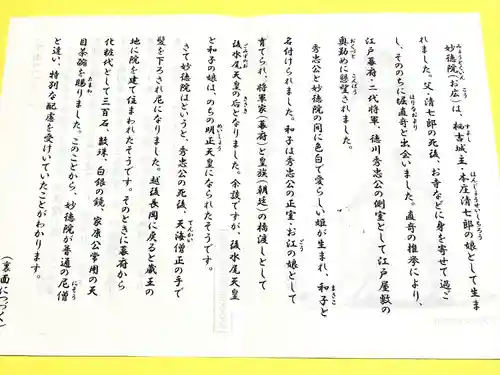 妙徳院(お庄)は、秘吉城主・本庄清七郎の娘として生ま
れました。父、清七郎の死後、お寺などに身を寄せて過ご
し、そののちに堀直奇と出会いました。直奇の推挙により、
江戸幕府・二代将軍、徳川秀忠公の側室として江戸屋敷の
奥勤めに懇望されました。
秀忠公と妙徳院の間に色白で愛らしい姫が生まれ、和子と
名付けられました。和子は秀忠公の正室・お江の娘として
育てられ、将軍家(幕府)と皇族(朝廷)の橋渡しとして
後水尾天皇の后となりました。余談ですが、後水尾天皇
と和子の娘は、のちの明正天皇になられたそうです。
さて妙徳院はというと、秀忠公の死後、天海僧正の手で
髪を下ろされ尼になりました。越後長岡に戻ること蔵王の
地に院を建て住まわれたそうです。そのときに幕府から
化粧代として三百石、数珠、白銀の鏡、家康公常用の天
目茶碗を賜りました。このことから、妙徳院が普通の尼僧
と違い、特別な配慮を受けていたことがわかります。
(裏面につづく)